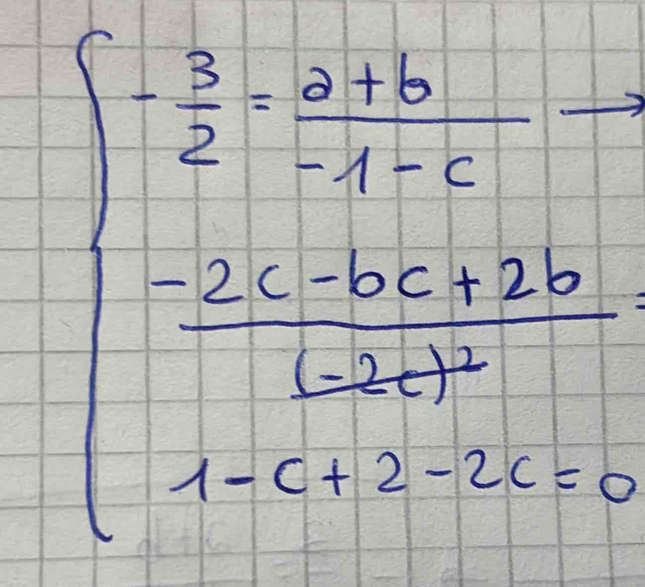 -3/2 = a+b/-1-c →
-2c-bc+2b/(-2c)² =
1-c+2-2c=0